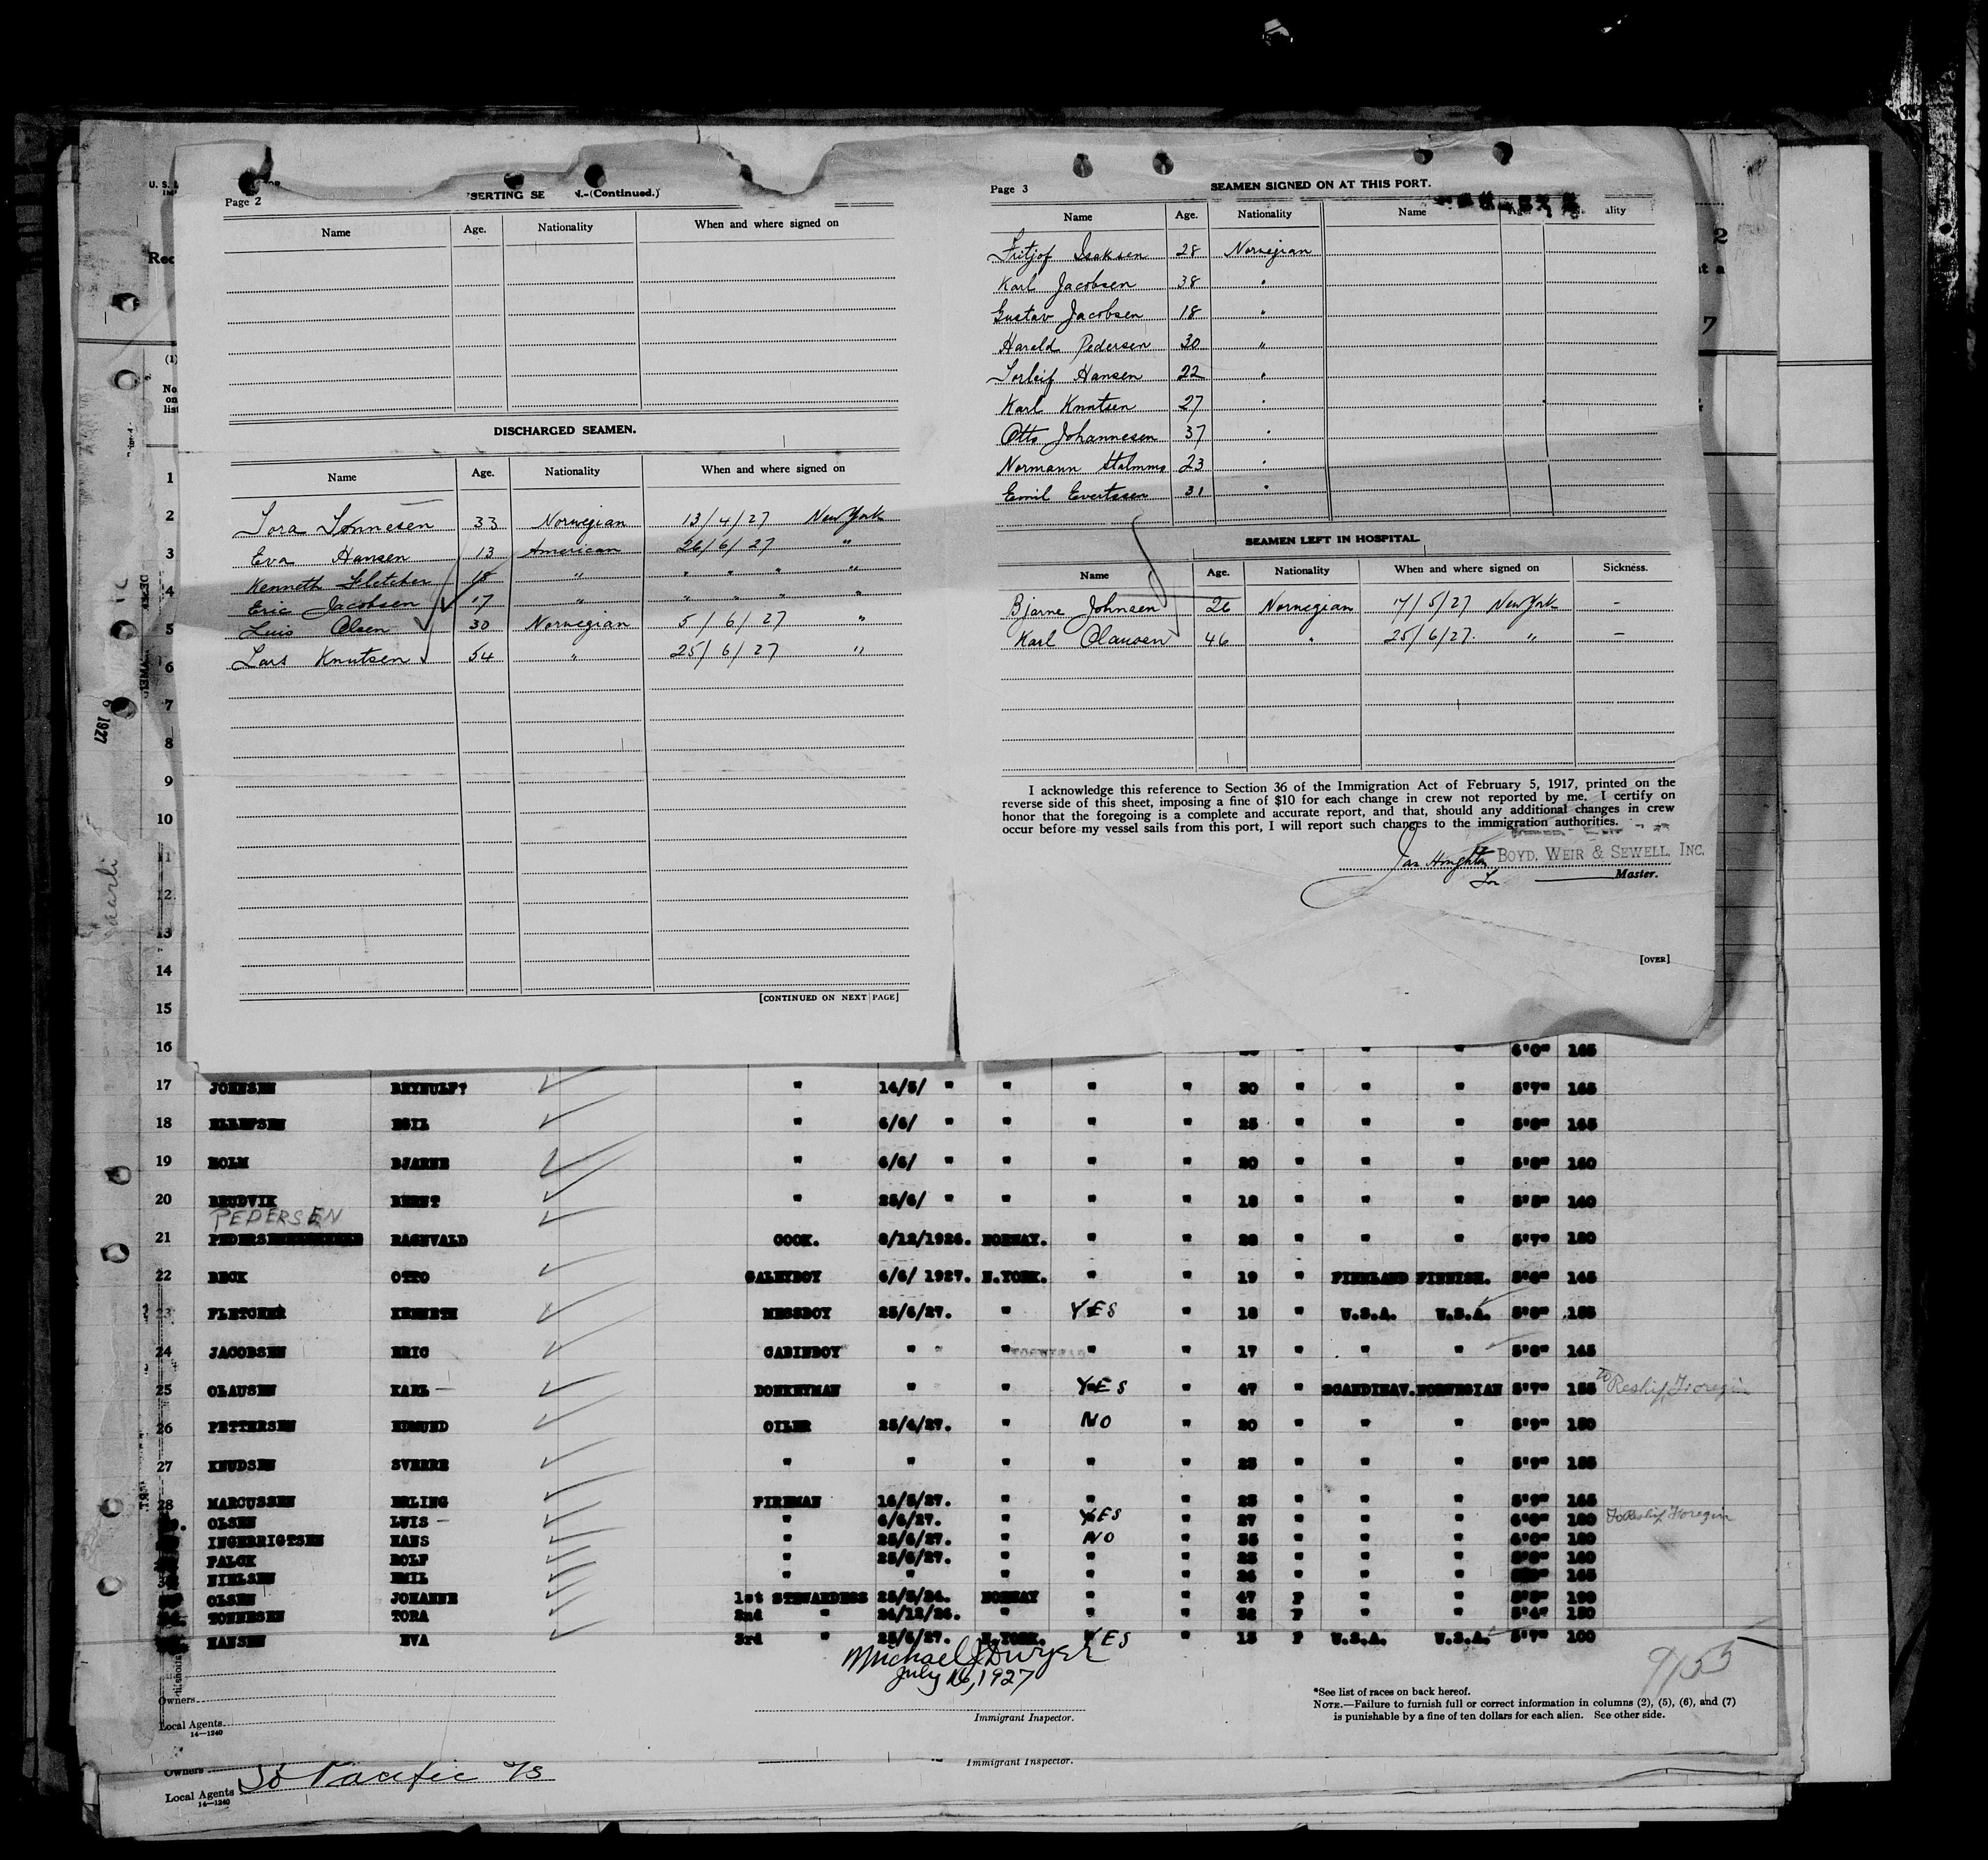 Page 2
SERTING SE N.-(Continued.)
Name Age. Nationality When and where signed on
DISCHARGED SEAMEN.
Name Age. Nationality When and where signed on
Tora Tönnesen 33 Norwegian 13/4/27 New York
Eva Hansen 13 American 26/6/27 "
Kenneth Fletcher 18 " " " " "
Eric Jacobsen 17 " " " " "
Luis Olsen 30 Norwegian 5/6/27 "
Lars Knutsen 54 " 25/6/27 "
[CONTINUED ON NEXT PAGE]
Page 3
SEAMEN SIGNED ON AT THIS PORT.
Name Age. Nationality Name ality
Fritjof Isaksen 28 Norwegian
Karl Jacobsen 38 "
Gustav Jacobsen 18 "
Harald Pedersen 30 "
Torleif Hansen 22 "
Karl Knutsen 27 "
Otto Johannesen 37 "
Normann 23 "
Emil Evertsen 31 "
SEAMEN LEFT IN HOSPITAL
Name Age. Nationality When and where signed on Sickness.
Bjarne Johnsen 26 Norwegian 17/5/27 New York -
Karl Olausen 46 " 25/6/27. " -
I acknowledge this reference to Section 36 of the Immigration Act of February 5, 1917, printed on the
reverse side of this sheet, imposing a fine of $10 for each change in crew not reported by me. I certify on
honor that the foregoing is a complete and accurate report, and that, should any additional changes in crew
occur before my vessel sails from this port, I will report such changes to the immigration authorities.
Jas Houghton BOYD, WEIR & SEWELL, INC.
for Master.
[OVER]
U. S.
Rec
(1)
No
on
list
1
2
3
4
5
6
7
8
9
10
11
12
13
14
15
16 " " 6'0" 165
17 JOHNSEN REYNULFT " 14/5/ " " " " 30 " " " 5'7" 165
18 ELLEFSEN EGIL " 6/6/ " " " " 25 " " " 5'8" 165
19 HOLM BJARNE " 6/6/ " " " " 20 " " " 5'8" 160
20 BRUDVIK BERNT " 25/6/ " " " " 18 " " " 5'5" 140
PEDERSEN
21 RAGNVALD COOK. 8/12/1926. NORWAY. " " 28 " " " 5'7" 180
22 BECK OTTO GALEYBOY 6/6/ 1927. N.YORK. " " 19 " FINNLAND FINNISH. 5'6" 145
23 FLETCHER KENNETH MESSBOY 25/6/27. " YES " 18 " U.S.A. U.S.A. 5'8" 155
24 JACOBSEN ERIC CABINBOY " " " " 17 " " " 5'8" 145
25 OLAUSEN KARL - DONKEYMAN " " YES " 47 " SCANDINAV. NORWEGIAN 5'7" 155 To Reship Foregin
26 PETTERSEN EDMUND OILER 25/4/27. " NO " 20 " " " 5'9" 150
27 KNUDSEN SVERRE " " " " " 23 " " " 5'9" 155
28 MARCUSSEN ERLING FIREMAN 16/5/27. " " " 25 " " " 5'9" 165
OLSEN LUIS - " 6/6/27. " YES " 27 " " " 6'0" 180 To Reship Foregin
INGEBRIGTSEN HANS " 25/6/27. " NO " 35 " " " 6'0" 180
FALCK ROLF " 25/6/27. " " " 25 " " " 5'8" 160
NIELSEN EMIL " " " " " 24 " " " 165
OLSEN JOHANNE 1st STEWARDESS 25/5/24. NORWAY " " 47 F " " 5'5" 190
TONNESEN TORA 2nd " 24/12/26. " " " 32 F " " 5'4" 150
HANSEN EVA 3rd " 25/6/27. N.YORK. YES " 15 F U.S.A. U.S.A. 5'7" 100
Michael J Dwyer
July 16, 1927
9/55
Owners
Local Agents
14—1240
Immigrant Inspector.
*See list of races on back hereof.
NOTE.—Failure to furnish full or correct information in columns (2), (5), (6), and (7)
is punishable by a fine of ten dollars for each alien. See other side.
Owners
Immigrant Inspector.
Local Agents So Pacific S/S
14—1240